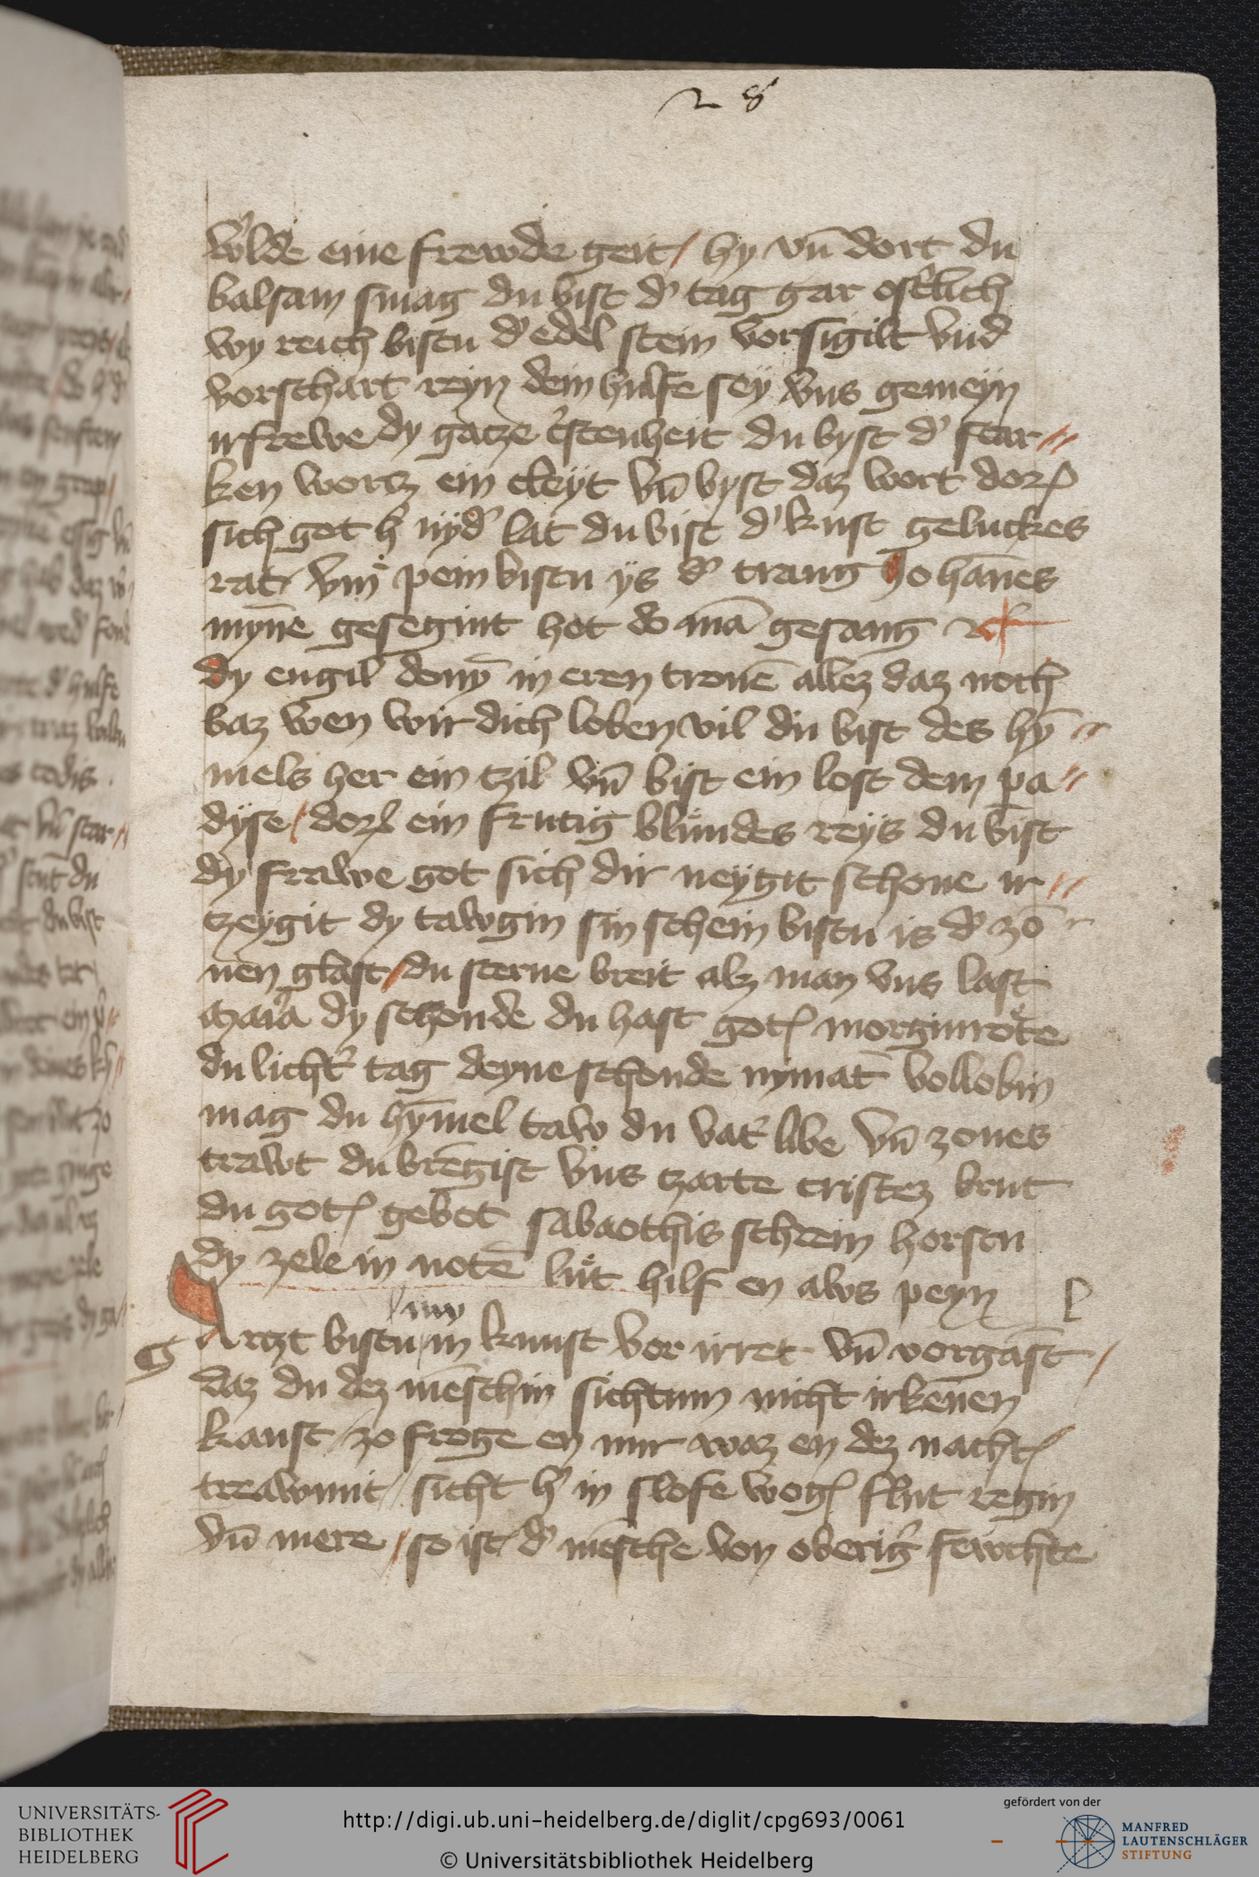 28
wilde eine frewde geit / hy vn̄ dort du
balsam smag du bist d' tag gar ostirlich
wy reich bistu d' edel stein vorsigilt vnd
vorschart reyn dein hulfe sey vns gemeyn
irfrewe dy gatze c̓stenheit du byst d' star //
ken wortz ein cleyt vn̄ byst daz wort
sich got h' nyd' lat du bist d' kust geluckes
rat vm̄ pein bistu ys d' trang Johānes
mȳne gesegint hot do mā gesang
dy engil dony in eren tronē allez daz noch
baz wen wir dich loben vil du bist des hȳ //
mels her ein tzil vn̄ bist ein lost dem pa //
dyse / ein frutig bluͤndes reys du bist
dy frawe got sich dir neygit schone ir //
tzeygit dy tawgin sin schein bistu is d' zo
nen glast / du sterne breit alz man vns last
maria dy schonde du hast morginrote
du licht' tag deyne schonde nymāt vollobin
mag du hȳmel taw du vat' libe vn̄ zones
trawt du brēgist vns tzarte cristez brut
du gebot sabaothis schrein horstu
dy zele in notē lut hilf en aws peyn
nw
g
Artzt bistu in kunst vor irret vn̄ vorgāst /
daz du dez mēschin sichtum nicht irkenen
kanst / zo froge en nur waz en dez nacht
trawmit / sicht h' in slofe flut regin
vn̄ mere / so ist d' mēsche von oberig' fewchte
UNIVERSITÄTS-
BIBLIOTHEK
HEIDELBERG
http://digi.ub.uni-heidelberg.de/diglit/cpg693/0061
© Universitätsbibliothek Heidelberg
gefördert von der
MANFRED
LAUTENSCHLÄGER
STIFTUNG